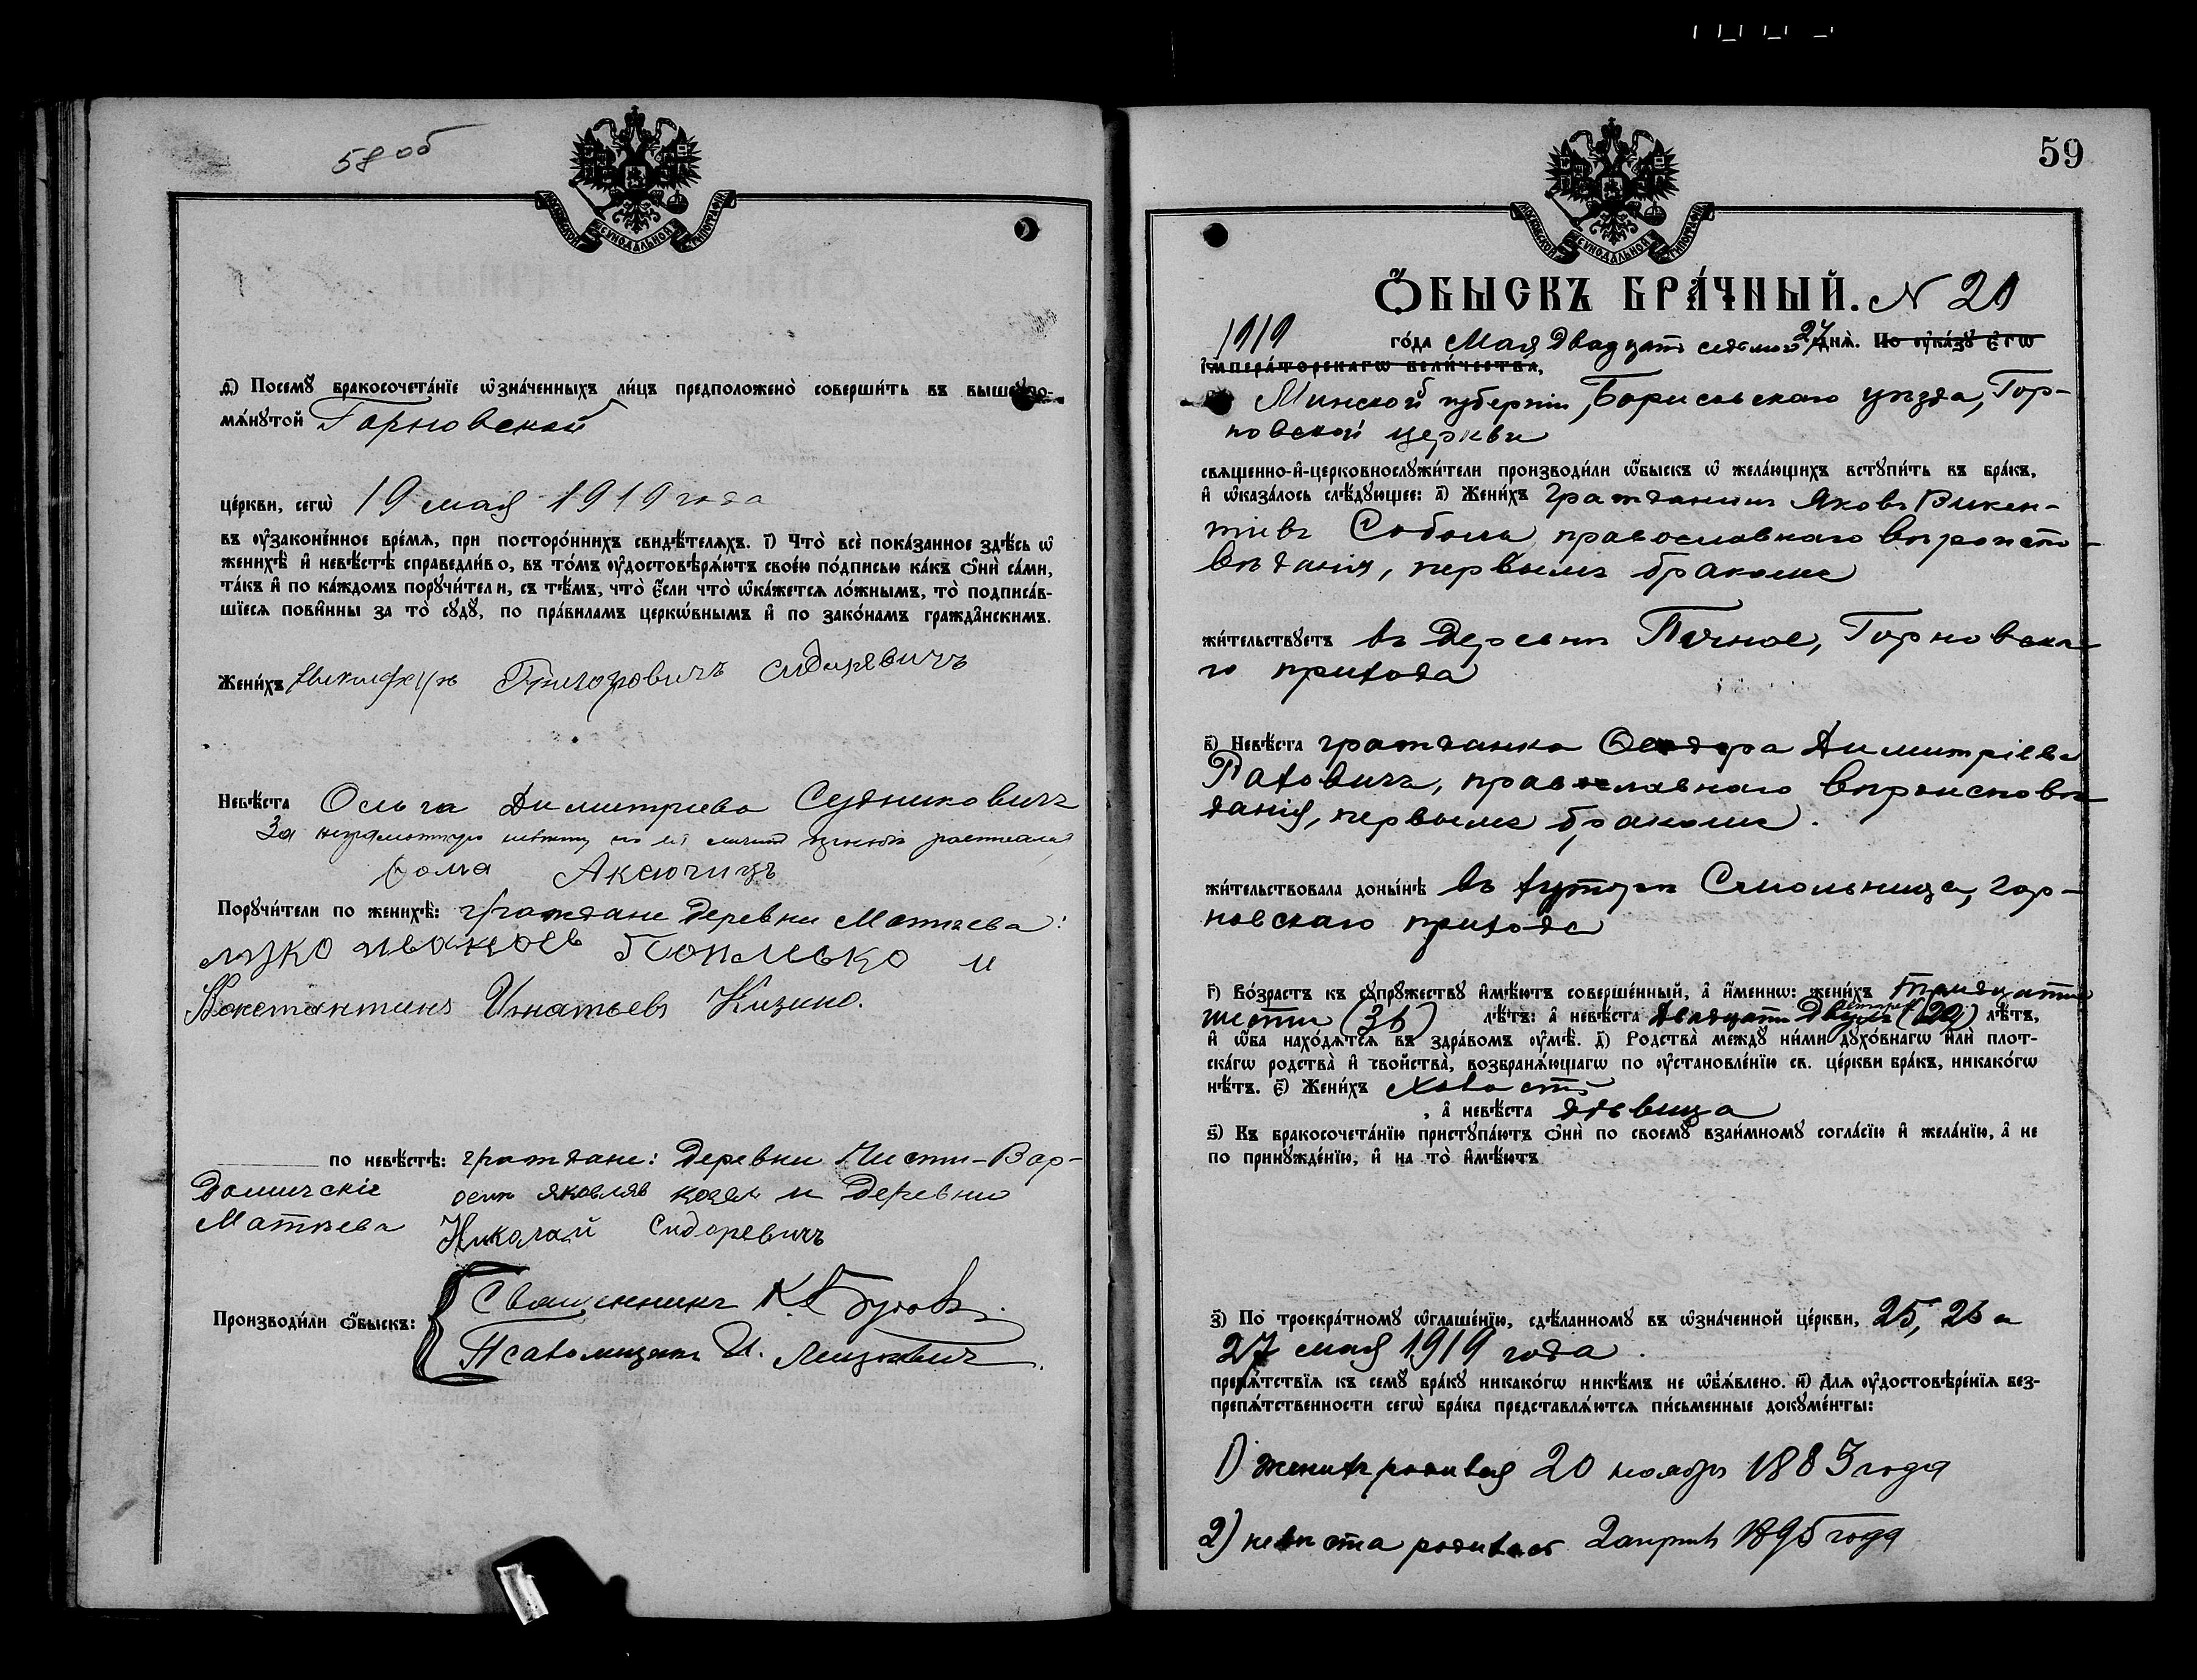 58 об
МОСКОВСКОЙ СѴНОДАЛЬНОЙ ТИПОГРАФІИ
д҃) Посемꙋ бракосочета́нїе ѡзна́ченныхъ ли́цъ предположено̀ соверши́ть въ вышеꙋпо-
мѧ́нꙋтой Горновской
це́ркви, сегѡ̀ 19 мая 1919 года
въ ᲂу҆законе́нное вре́мѧ, при посторо́ннихъ свидѣ́телѧхъ. і҃) Что̀ всѐ пока́занное здѣ́сь ѡ҆
женихѣ̀ и҆ невѣ́стѣ справедли́во, въ то́мъ ᲂу҆достовѣрѧ́ютъ свое́ю по́дписью ка́къ ѻ҆нѝ са́ми,
та́къ и҆ по ка́ждомъ порꙋчи́тели, съ тѣ́мъ, что̀ є҆́сли что̀ ѡ҆ка́жетсѧ ло́жнымъ, то̀ подписа́в-
шїесѧ пови́нны за то̀ сꙋдꙋ̀, по пра́виламъ церко́внымъ и҆ по зако́намъ гражда́нскимъ.
Жени́хъ Никифоръ Григоровичъ Сидоревичъ
Невѣ́ста Ольга Димитриева Судниковичъ
За неграмотную невесту по её личной просьбе росписался
Фома Аксючицъ
Порꙋчи́тели по женихѣ̀: граждане деревни Матвева:
Иванов Поплыко и
Константинъ Игнатьевъ Кизино.
по невѣ́стѣ: граждане: деревни Мисти-Вар-
Домичскіе осип яковлив козел и деревни
Матвева Николай Сидоревичъ
Производи́ли ѻ҆́быскъ: Священникъ К. Бугов.
Псаломщикъ И. Лицкевич.
59
МОСКОВСКОЙ СѴНОДАЛЬНОЙ ТИПОГРАФІИ
Ѻ҆́БЫСКЪ БРА́ЧНЫЙ. N 20
1919 го́да Мая двадцать седьмого 27 днѧ̀. По ᲂу҆ка́зꙋ є҆гѡ̀
и҆мпера́торскагѡ вели́чества,
Минской губерніи, Борисовскаго уѣзда, Гор-
новской церкви
свѧщенно-и҆-церковнослꙋжи́тели производи́ли ѻ҆́быскъ ѡ҆ жела́ющихъ встꙋпи́ть въ бра́къ,
и҆ ѡ҆каза́лось слѣ́дꙋющее: а҃) Жени́хъ гражданинъ Яковъ Викен-
тіевъ Соболь православнаго вѣроиспо-
вѣданія, первымъ бракомъ
жи́тельствꙋетъ въ деревнѣ Пчное, Горновска-
го прихода
в҃) Невѣ́ста гражданка Феодора Димитріева
Рахович, православнаго вѣроисповѣ-
данія, первымъ бракомъ.
жи́тельствовала доны́нѣ въ хуторѣ Смольница, Гор-
новскаго прихода
г҃) Во́зрастъ къ сꙋпрꙋ́жествꙋ и҆мѣ́ютъ соверше́нный, а҆ и҆́меннѡ: жени́хъ тридцати
шести (36) лѣ́тъ: а҆ невѣ́ста двадцати двухъ четырех (24) лѣ́тъ,
и҆ ѻ҆́ба нахо́дѧтсѧ въ здра́вомъ ᲂу҆мѣ̀. д҃) Родства̀ междꙋ̀ ни́ми дꙋхо́внагѡ и҆лѝ плот-
ска́гѡ родства̀ и҆ свойства̀, возбранѧ́ющагѡ по ᲂу҆становле́нїю св. це́ркви бра́къ, никако́гѡ
нѣ́тъ. є҃) Жени́хъ холостъ
, а҆ невѣ́ста дѣвица
ѕ҃) Къ бракосочета́нїю пристꙋпа́ютъ ѻ҆нѝ по своемꙋ̀ взаи́мномꙋ согла́сїю и҆ жела́нїю, а҆ не
по принꙋжде́нїю, и҆ на то̀ и҆мѣ́ютъ
з҃) По троекра́тномꙋ ѡ҆глаше́нїю, сдѣ́ланномꙋ въ ѡзна́ченной це́ркви, 25, 26 и
27 мая 1919 года.
препѧ́тствїѧ къ семꙋ̀ бра́кꙋ никако́гѡ никѣ́мъ не ѡ҆б̾ѧ́влено. и҃) Длѧ ᲂу҆достовѣре́нїѧ без-
препѧ́тственности сегѡ̀ бра́ка представлѧ́ютсѧ пи́сьменные докꙋме́нты:
1) женихъ родился 20 ноября 1883 года
2) невѣста родилась 2 апрѣля 1895 года